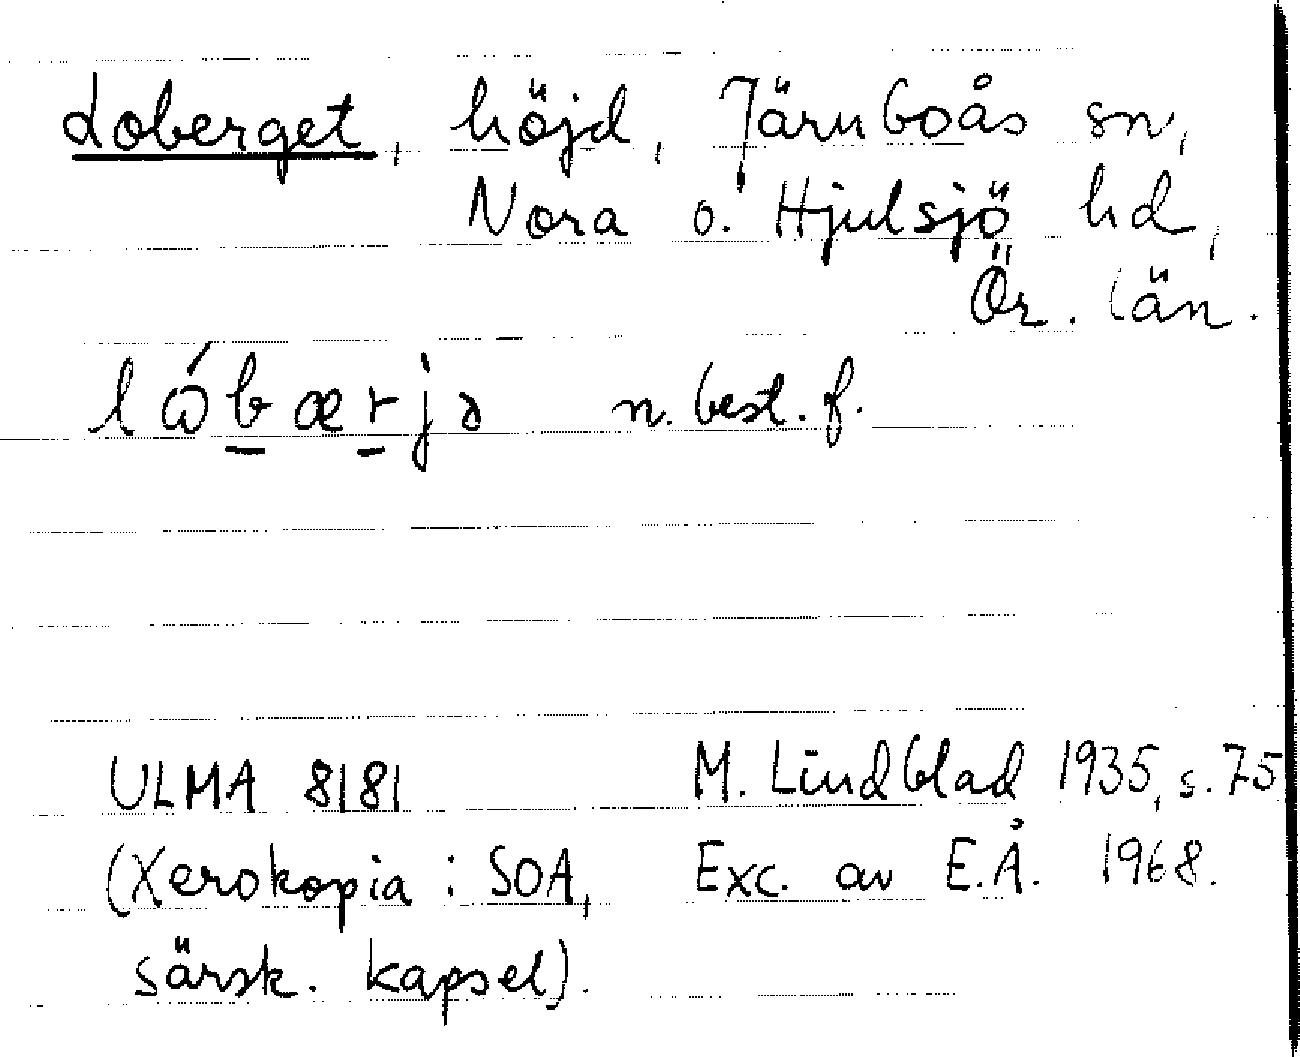 Loberget, höjd, Järnboås sn,
Nora o. Hjulsjö hd,
Ör. län.
lɷ́bærjə n. best. f.
ULMA 8181 M. Lindblad 1935, s. 75
(Xerokopia i SOA, Exc. av E.Å. 1968.
särsk. kapsel).